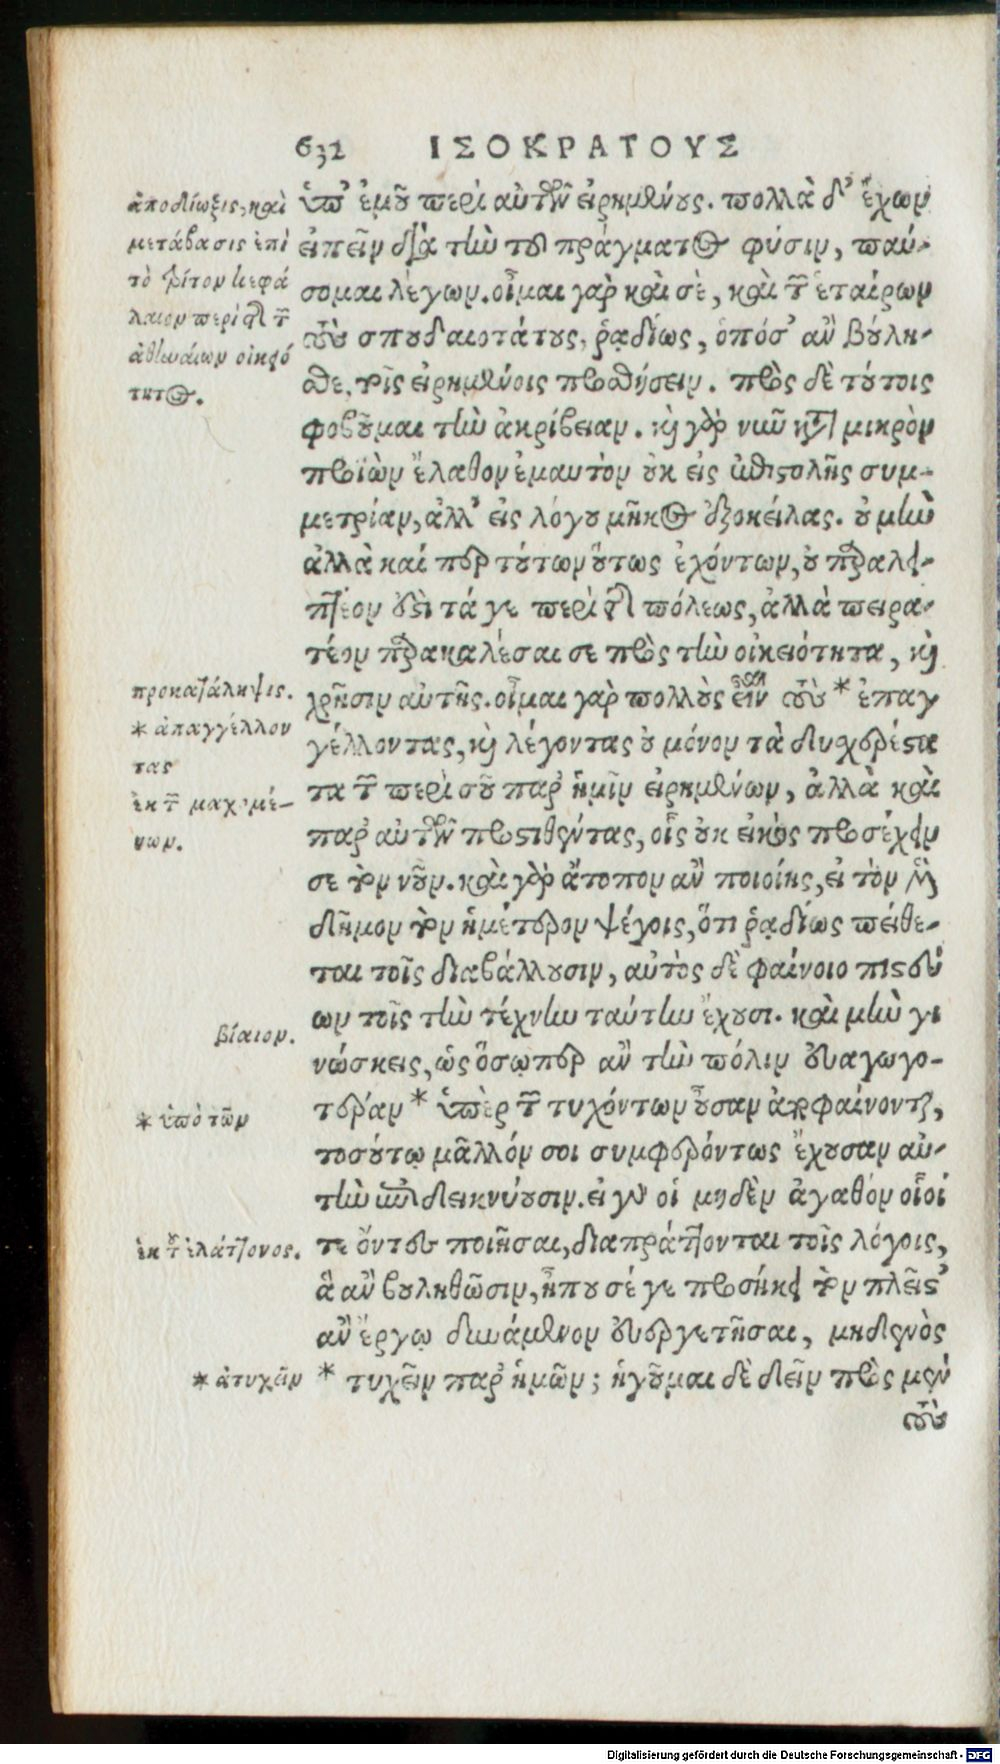 632 ΙΣΟΚΡΑΤΟΥΣ
ὑπ' ἐμοῦ περὶ αὐτῶν εἰρημένους. πολλὰ δ' ἔχων
εἰπεῖν διὰ τὴν τοῦ πράγματος φύσιν, παύ-
σομαι λέγων. οἶμαι γὰρ καὶ σὲ, καὶ τῶν ἑταίρων
τοὺς σπουδαιοτάτους, ῥᾳδίως, ὁπόσ' ἂν βούλη-
σθε, τοῖς εἰρημένοις προσθήσειν. πρὸς δὲ τούτοις
φοβοῦμαι τὴν ἀκρίβειαν. καὶ γὰρ νῦν κατὰ μικρὸν
προϊὼν ἔλαθον ἐμαυτὸν οὐκ εἰς ἐπιστολῆς συμ-
μετρίαν, ἀλλ' εἰς λόγου μῆκος ἐξοκείλας. οὐ μὴν
ἀλλὰ καί περ τούτων οὕτως ἐχόντων, οὐ παραλει-
πτέον ἐστὶ τά γε περὶ τῆς πόλεως, ἀλλὰ πειρα-
τέον παρακαλέσαι σε πρὸς τὴν οἰκειότητα, καὶ
χρῆσιν αὐτῆς. οἶμαι γὰρ πολλοὺς εἶναι τοὺς * ἐπαγ
γέλλοντας, καὶ λέγοντας οὐ μόνον τὰ δυσχερέστα
τα τῶν περὶ σοῦ παρ' ἡμῖν εἰρημένων, ἀλλὰ καὶ
παρ' αὐτῶν προστιθέντας, οἷς οὐκ εἰκὸς προσέχειν
σε τὸν νοῦν. καὶ γὰρ ἄτοπον ἂν ποιοίης, εἰ τὸν μὲν
δῆμον τὸν ἡμέτερον ψέγοις, ὅτι ῥᾳδίως πείθε-
ται τοῖς διαβάλλουσιν, αὐτὸς δὲ φαίνοιο πιστεύ
ων τοῖς τὴν τέχνην ταύτην ἔχουσι. καὶ μὴν γι
νώσκεις, ὡς ὅσῳπερ ἂν τὴν πόλιν εὐαγωγο-
τέραν * ὑπὲρ τῶν τυχόντων οὖσαν ἀποφαίνονται,
τοσούτῳ μᾶλλόν σοι συμφερόντως ἔχουσαν αὐ-
τὴν ἐπιδεικνύουσιν. εἰ γὰρ οἱ μηδὲν ἀγαθὸν οἷοί
τε ὄντες ποιῆσαι, διαπράττονται τοῖς λόγοις,
ἃ ἂν βουληθῶσιν, ἦπου σέ γε προσήκει τὸν πλεῖστ'
ἂν ἔργῳ δυνάμενον εὐεργετῆσαι, μηδενὸς
* τυχεῖν παρ' ἡμῶν; ἡγοῦμαι δὲ δεῖν πρὸς μὲν
τοὺς
ἀποδίωξις, καὶ
μετάβασις ἐπὶ
τὸ τρίτον κεφά
λαιον περὶ τῆς τῶν
ἀθηναίων οἰκειό
τητος.
προκατάληψις.
* ἀπαγγέλλον
τας
ἐκ τῶν μαχομέ-
νων.
βίαιον.
* ὑπὸ τῶν
ἐκ τοῦ ἐλάττονος.
* ἀτυχεῖν
Digitalisierung gefördert durch die Deutsche Forschungsgemeinschaft - DFG